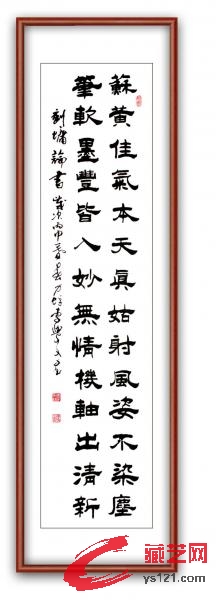 蘇黃佳氣本天真姑射風姿不染塵
筆軟墨豐皆入妙無情機軸出清新
劉墉論書歲次丙申
藏艺网
ys121.com